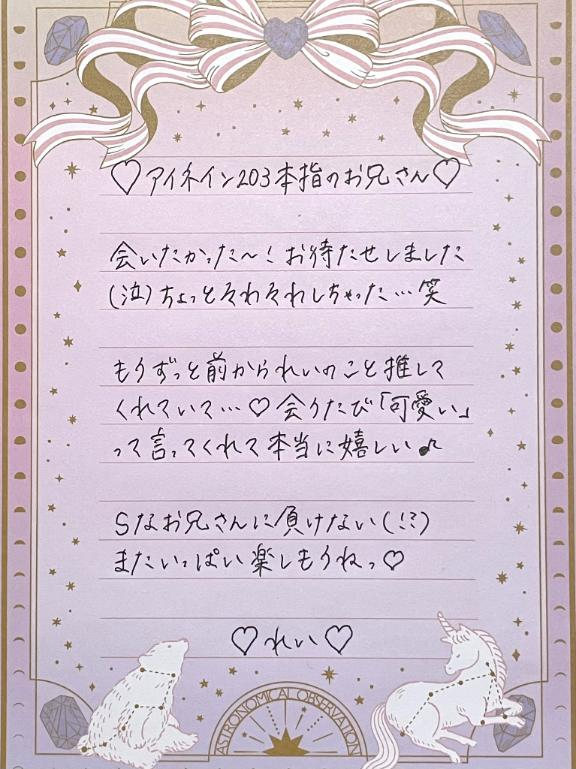 ♡アイネイン203本指のお兄さん♡
会いたかった〜！お待たせしました
(泣)ちょっとそわそわしちゃった…笑
もうずっと前かられいのこと推して
くれていて…♡会うたび「可愛い」
って言ってくれて本当に嬉しい♪
Sなお兄さんに負けない(!?)
またいっぱい楽しもうねっ♡
♡れい♡
ASTRONOMICAL OBSERVATION